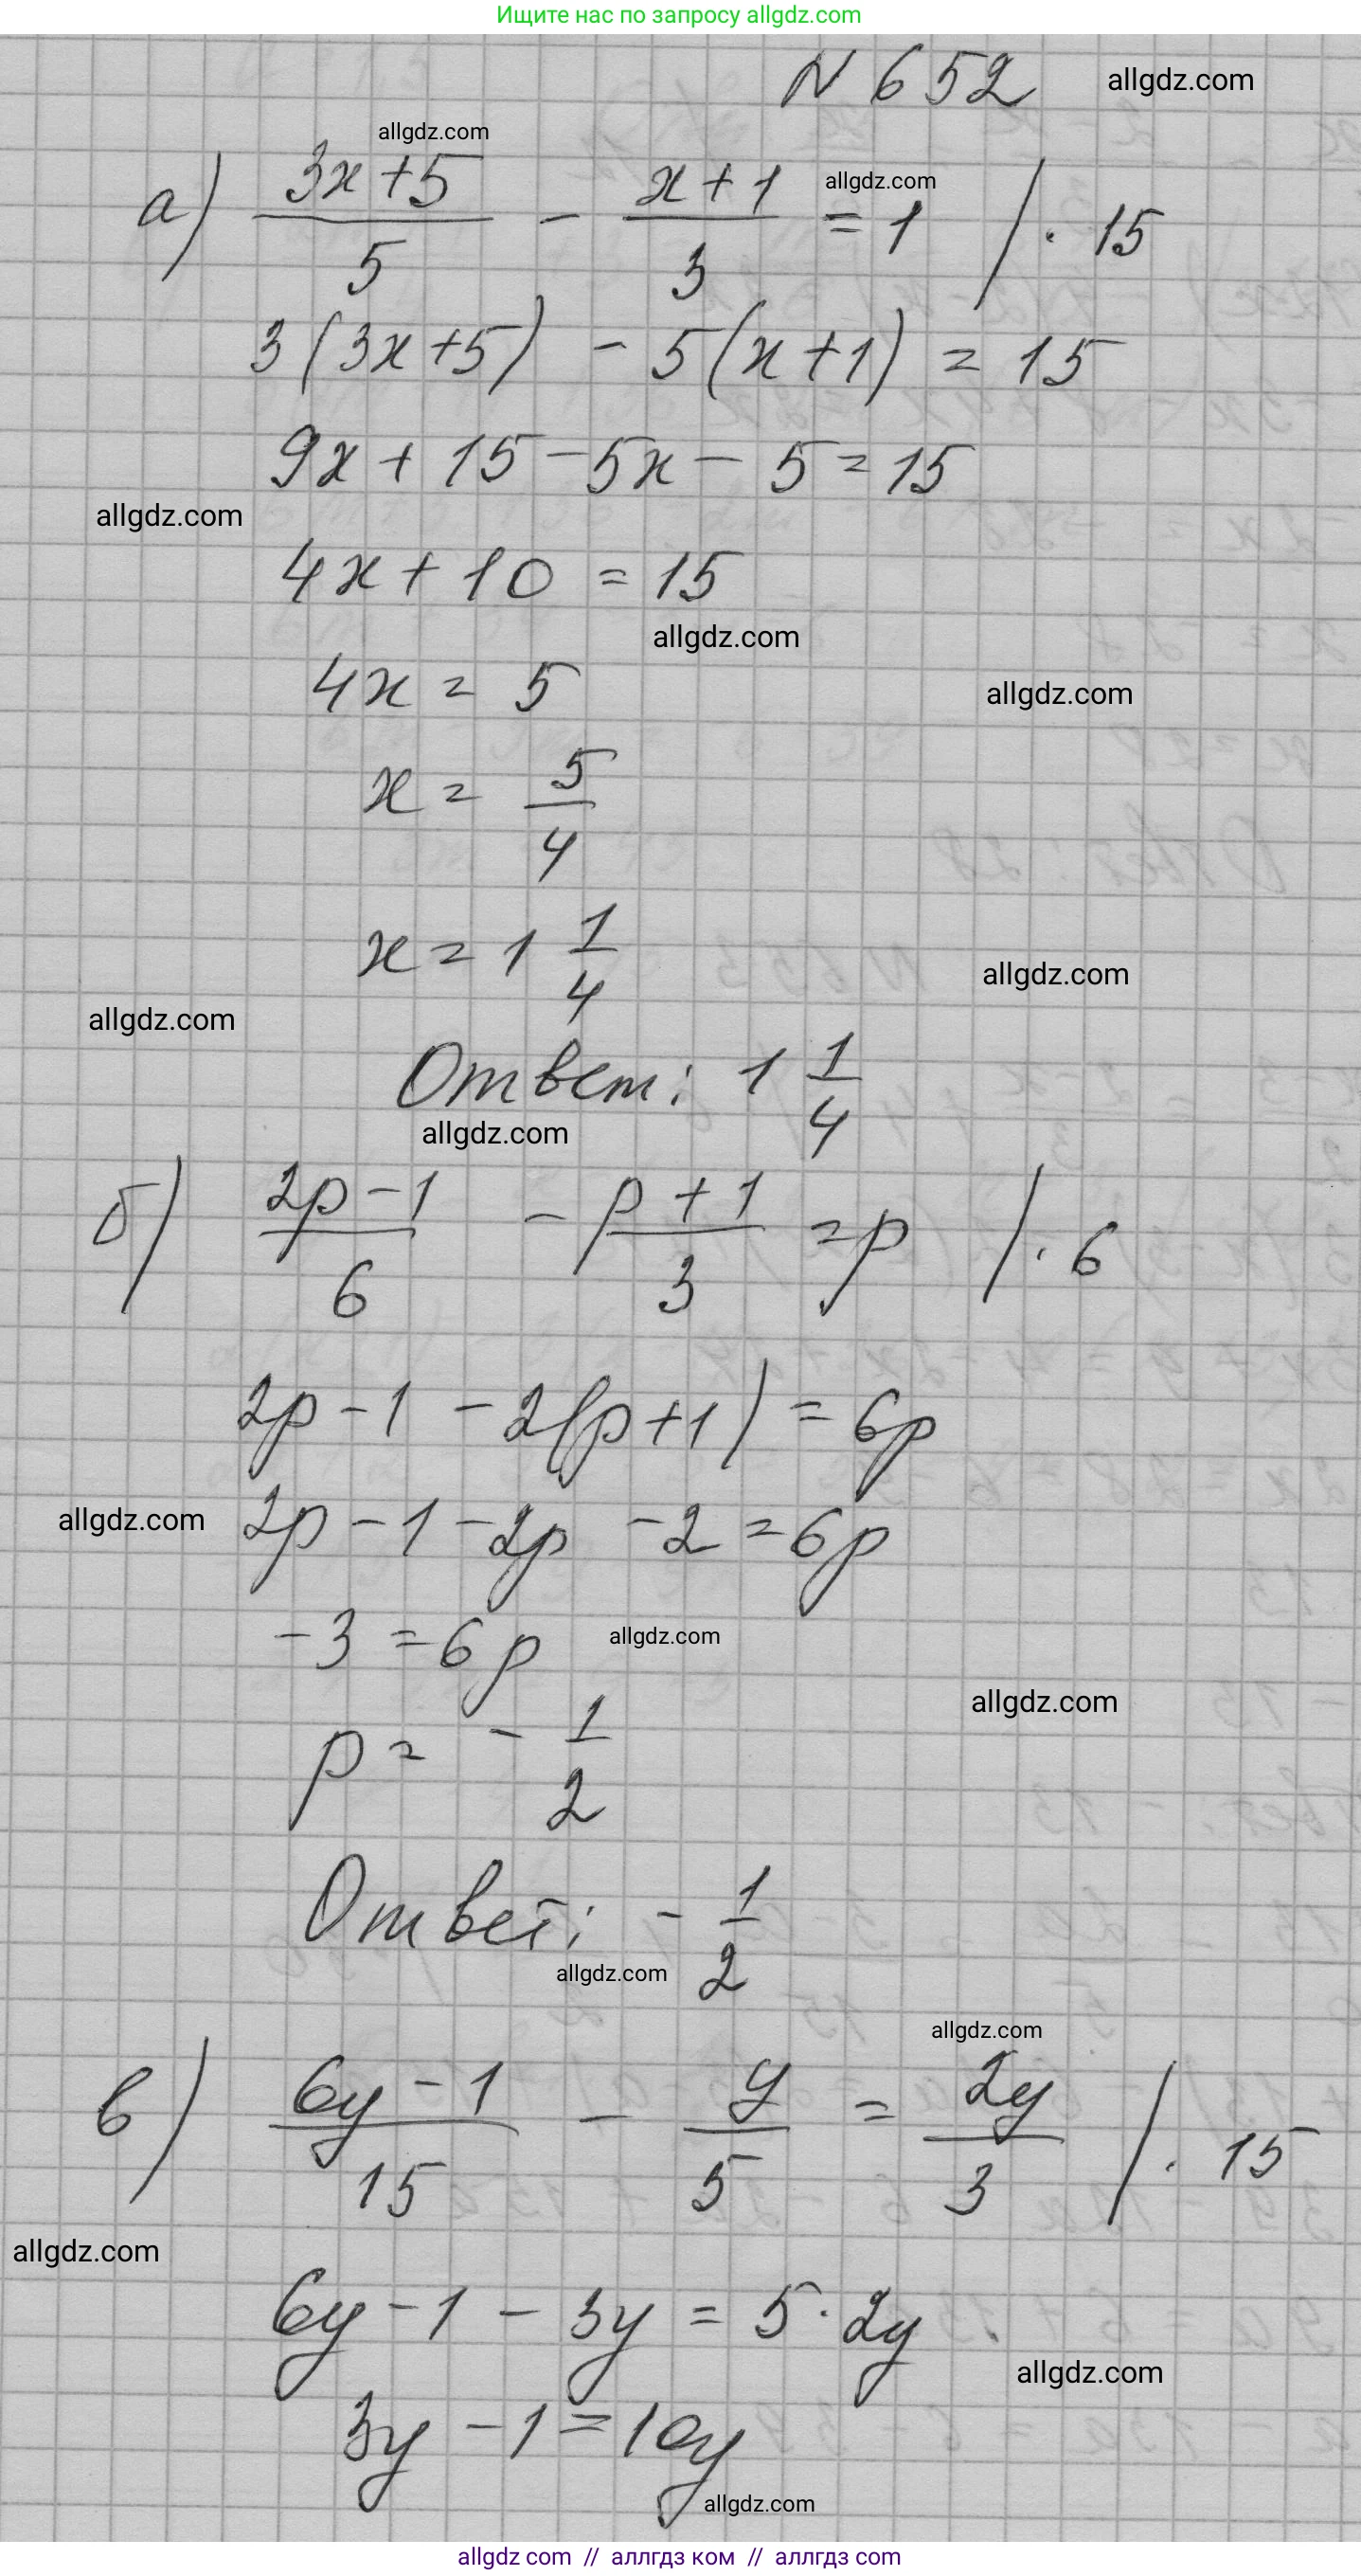 Ищите нас по запросу allgdz.com
N 652 allgdz.com
allgdz.com
а) (3x+5)/5 - (x+1)/3 = 1 /· 15 allgdz.com
3(3x+5) - 5(x+1) = 15
9x + 15 - 5x - 5 = 15
allgdz.com
4x + 10 = 15
allgdz.com
4x = 5 allgdz.com
x = 5/4
x = 1 1/4 allgdz.com
allgdz.com
Ответ: 1 1/4
allgdz.com
б) (2p-1)/6 - (p+1)/3 = p /· 6
2p - 1 - 2(p+1) = 6p
allgdz.com 2p - 1 - 2p - 2 = 6p
-3 = 6p allgdz.com
allgdz.com
p = - 1/2
Ответ: - 1/2
allgdz.com
allgdz.com
в) (6y-1)/15 - y/5 = 2y/3 /· 15
allgdz.com
6y - 1 - 3y = 5 · 2y
allgdz.com
3y - 1 = 10y
allgdz.com
allgdz com // аллгдз ком // аллгдз com